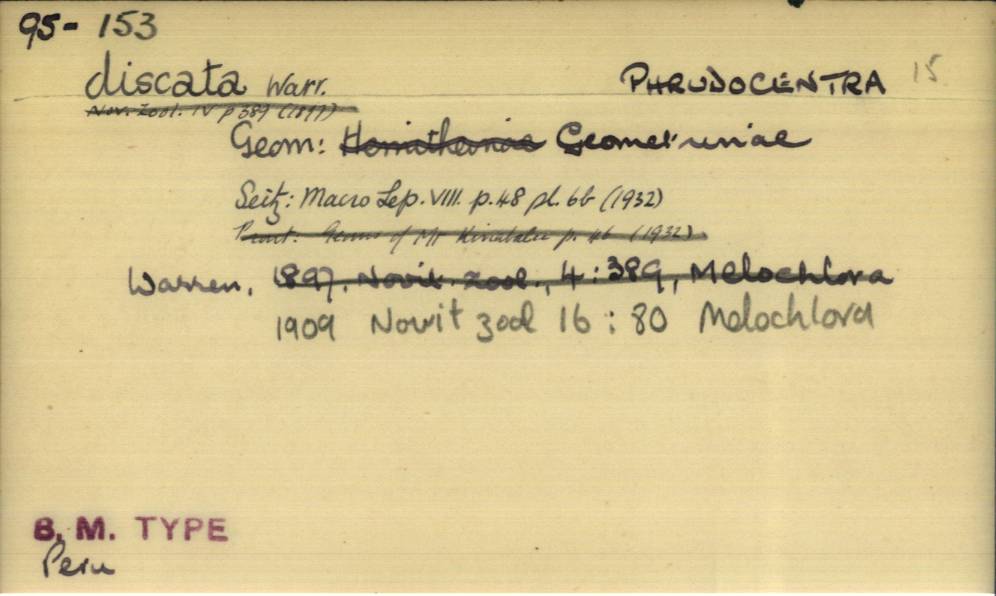 95- 153
discata Warr. PHRUDOCENTRA 15
Nov. Zool. IV p 389 (1897)
Geom: Hemitheinae Geometrinae
Seitz: Macro Lep. VIII. p. 48 pl. 6b (1932)
Prout: Geoms of Mt Kinabalu p. 46 (1932)
Warren, 1897, Novit. zool., 4 : 389, Melochlora
1909 Novit zool 16 : 80 Melochlora
B. M. TYPE
Peru